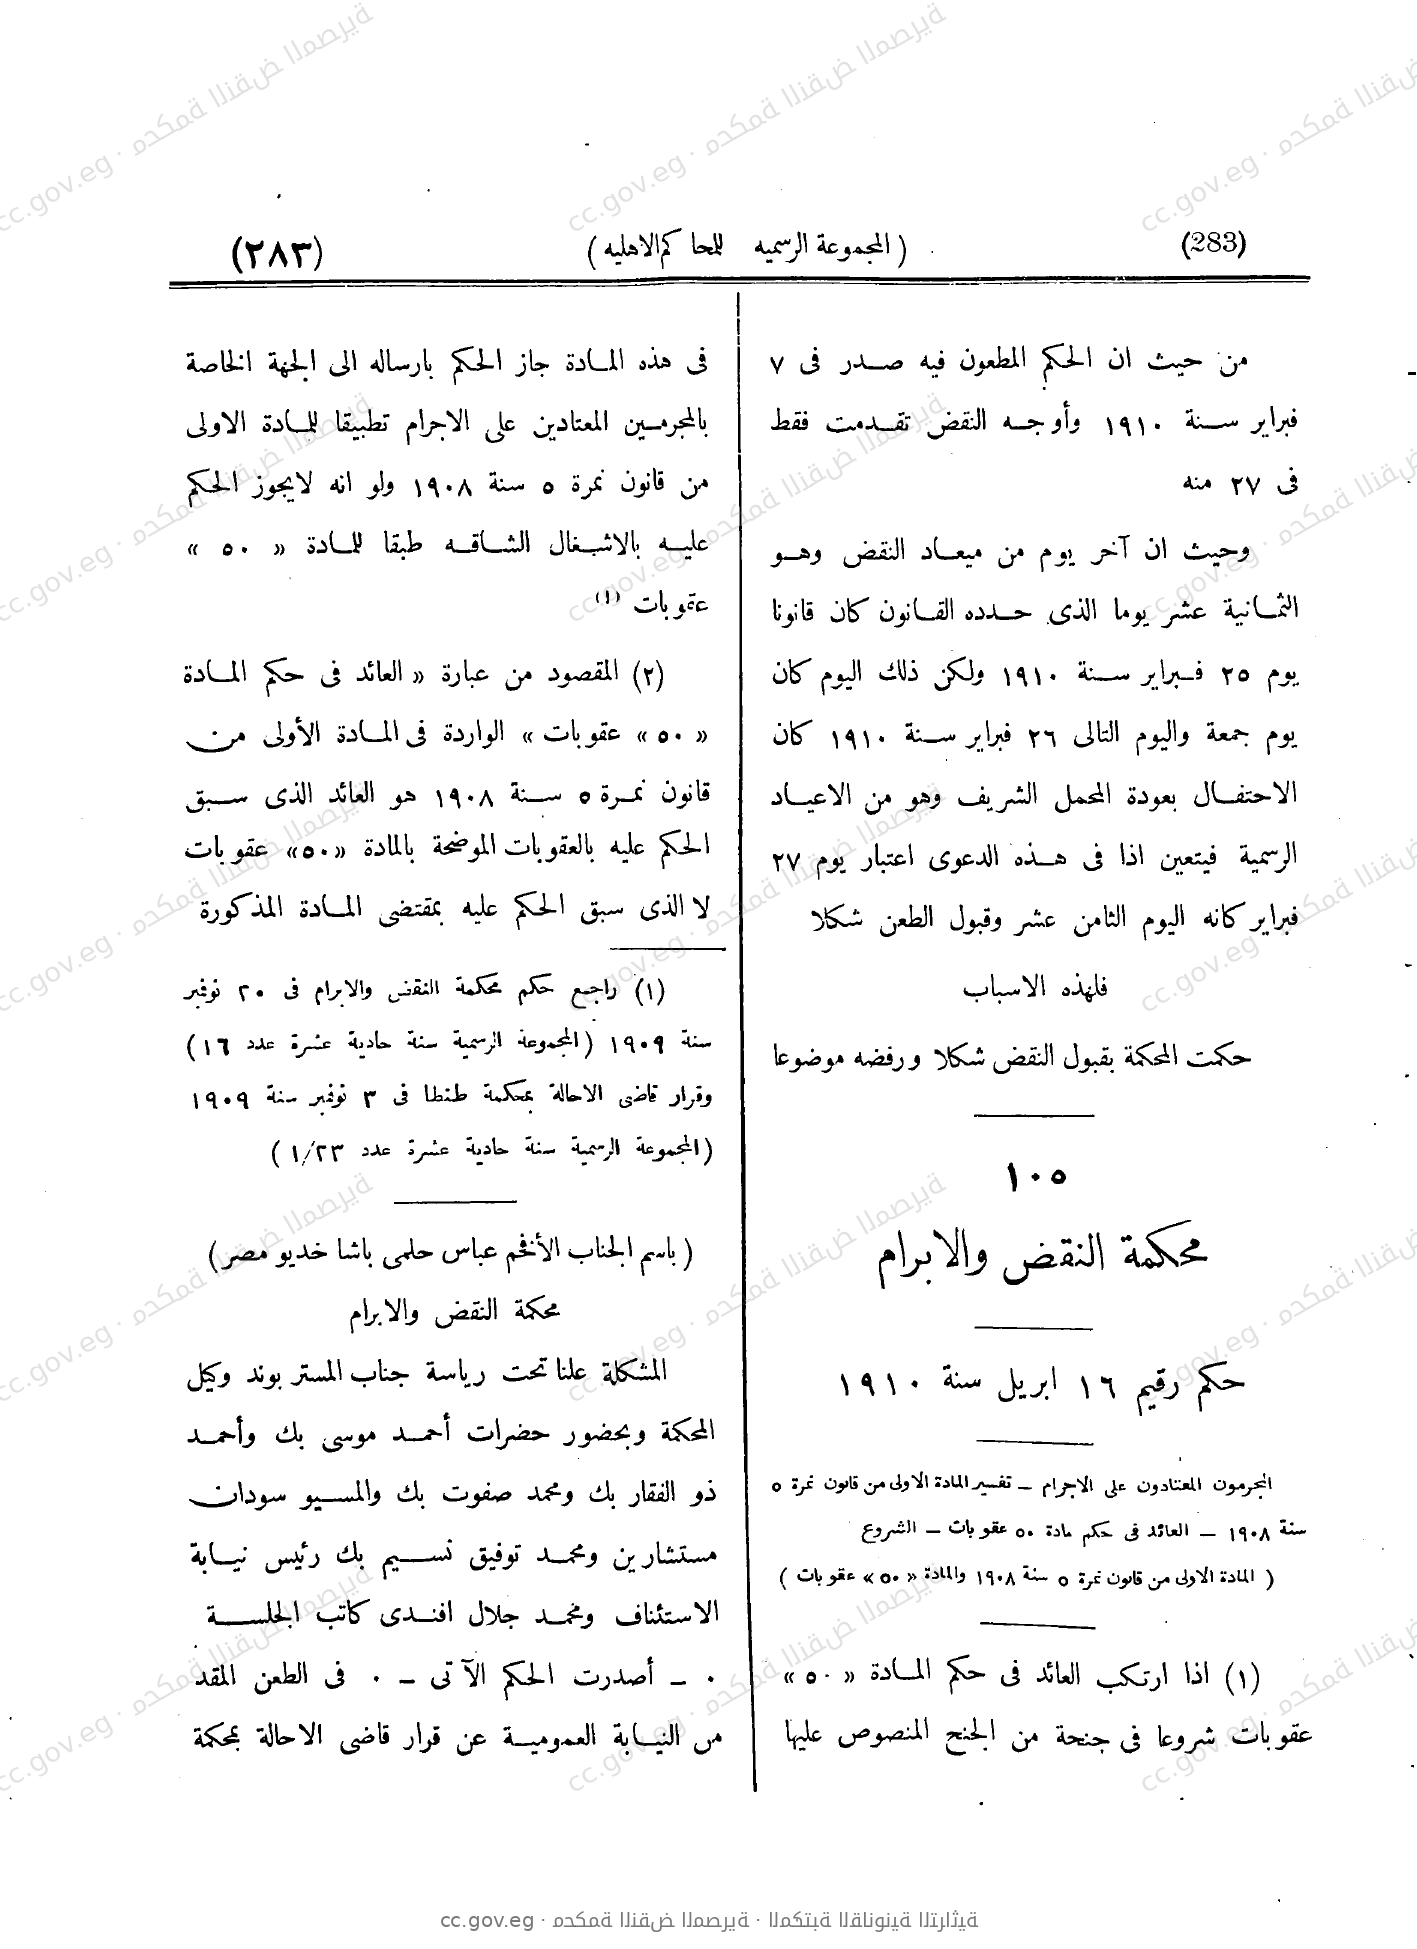 (283)
( المجموعة الرسميه للمحاكم الاهليه )
(٢٨٣)
من حيث ان الحكم المطعون فيه صدر فى ٧
فبراير سنة ١٩١٠ وأوجه النقض تقدمت فقط
فى ٢٧ منه
وحيث ان آخر يوم من ميعاد النقض وهو
الثمانية عشر يوما الذى حدده القانون كان قانونا
يوم ٢٥ فبراير سنة ١٩١٠ ولكن ذلك اليوم كان
يوم جمعة واليوم التالى ٢٦ فبراير سنة ١٩١٠ كان
الاحتفال بعودة المحمل الشريف وهو من الاعياد
الرسمية فيتعين اذا فى هذه الدعوى اعتبار يوم ٢٧
فبراير كانه اليوم الثامن عشر وقبول الطعن شكلا
فلهذه الاسباب
حكمت المحكمة بقبول النقض شكلا ورفضه موضوعا
١٠٥
محكمة النقض والابرام
حكم رقيم ١٦ ابريل سنة ١٩١٠
المجرمون المعتادون على الاجرام – تفسير المادة الاولى من قانون نمرة ٥
سنة ١٩٠٨ – العائد فى حكم مادة ٥٠ عقوبات – الشروع
( المادة الاولى من قانون نمرة ٥ سنة ١٩٠٨ والمادة « ٥٠ » عقوبات )
(١) اذا ارتكب العائد فى حكم المادة « ٥٠ »
عقوبات شروعا فى جنحة من الجنح المنصوص عليها
فى هذه المادة جاز الحكم بارساله الى الجهة الخاصة
بالمجرمين المعتادين على الاجرام تطبيقا للمادة الاولى
من قانون نمرة ٥ سنة ١٩٠٨ ولو انه لايجوز الحكم
عليه بالاشغال الشاقه طبقا للمادة « ٥٠ »
عقوبات (١)
(٢) المقصود من عبارة « العائد فى حكم المادة
« ٥٠ » عقوبات » الواردة فى المادة الأولى من
قانون نمرة ٥ سنة ١٩٠٨ هو العائد الذى سبق
الحكم عليه بالعقوبات الموضحة بالمادة «٥٠» عقوبات
لا الذى سبق الحكم عليه بمقتضى المادة المذكورة
(١) راجع حكم محكمة النقض والابرام فى ٢٠ نوفمبر
سنة ١٩٠٩ ( المجموعة الرسمية سنة حادية عشرة عدد ١٦ )
وقرار قاضى الاحالة بمحكمة طنطا فى ٣ نوفمبر سنة ١٩٠٩
( المجموعة الرسمية سنة حادية عشرة عدد ١/٢٣ )
( باسم الجناب الأفخم عباس حلمى باشا خديو مصر )
محكمة النقض والابرام
المشكلة علنا تحت رياسة جناب المستر بوند وكيل
المحكمة وبحضور حضرات أحمد موسى بك وأحمد
ذو الفقار بك ومحمد صفوت بك والمسيو سودان
مستشارين ومحمد توفيق نسيم بك رئيس نيابة
الاستئناف ومحمد جلال افندى كاتب الجلسة
٠ – أصدرت الحكم الآتى – ٠ فى الطعن المقد
من النيابة العمومية عن قرار قاضى الاحالة بمحكمة
cc.gov.eg · محكمة النقض المصرية · المكتبة القانونية التراثية